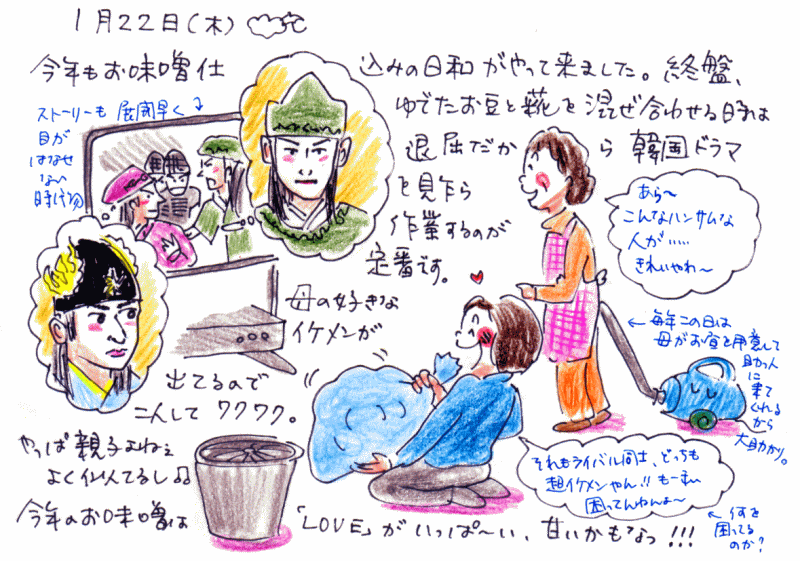 1月22日(木)
今年もお味噌仕
込みの日和がやって来ました。終盤、
ゆでたお豆と糀を混ぜ合わせる時は
退屈だか
ら韓国ドラマ
を見乍ら
作業するのが
定番です。
ストーリーも展開早く
目が
はなせ
ない
時代物
母の好きな
イケメンが
出てるので
こんしてワクワク。
やっぱ親子よねぇ
よく似てるし♫
今年のお味噌は
「LOVE」がいっぱ〜い、甘いかもなっ!!!
あら〜
こんなハンサムな
人が……
きれいやわ〜
←毎年この日は
母がお昼を用意して
助っ人
に
来て
くれる
から
大助かり。
それもライバル同士、どっちも
超イケメンやん!!もーまい
困ってんねんよ〜
←何を
困ってる
のか?